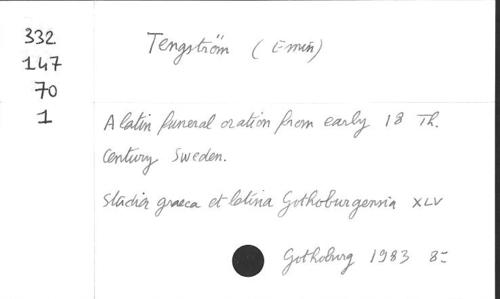 332
147
70
1
Tengström (Emin)
A latin funeral oration from early 18 Th.
Century Sweden.
Studia graeca et latina Gothoburgensia XLV
Gothoburg 1983 8=